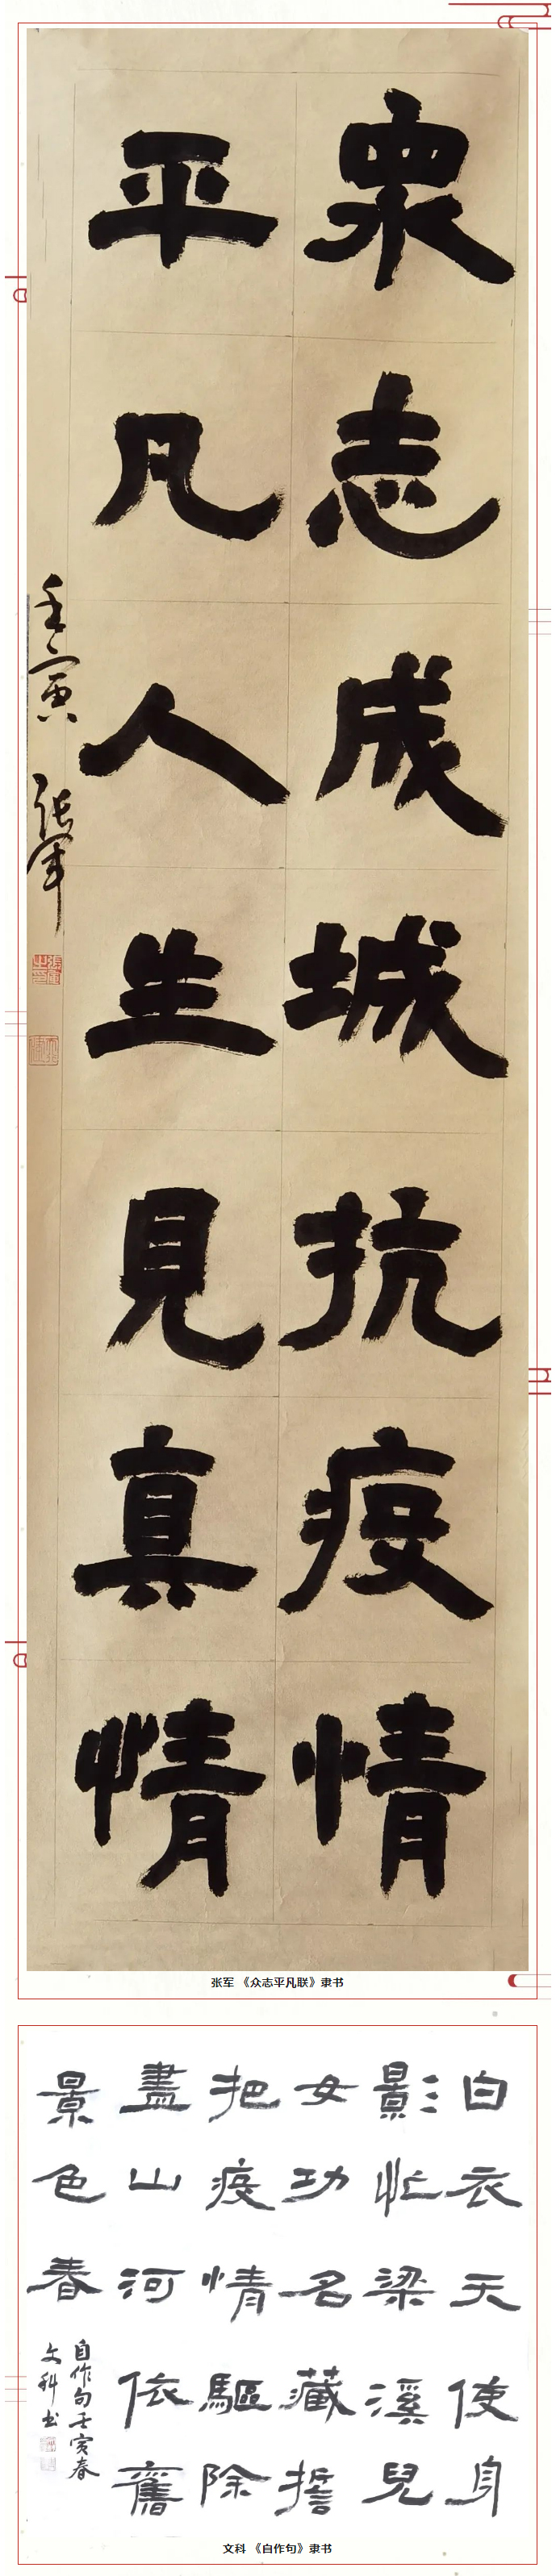 衆志成城抗疫情
平凡人生見真情
壬寅 张军
张军 《众志平凡联》隶书
白衣天使身
影忙梁溪兒
女功名藏誓
把疫情驅除
盡山河依舊
景色春
自作句壬寅春
文科书
文科 《自作句》隶书